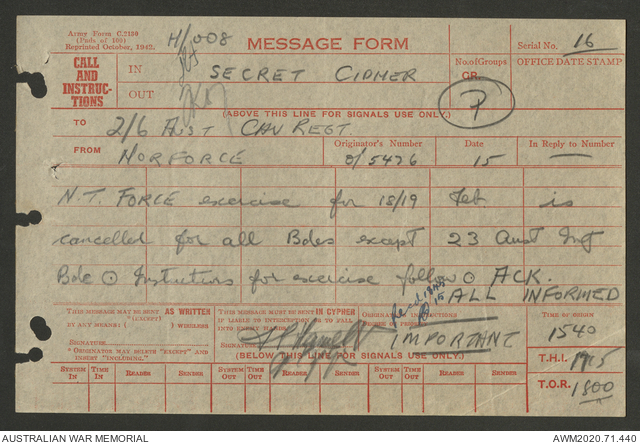 Army Form C.2130
(Pads of 100)
Reprinted October, 1942.
H/008
MESSAGE FORM
Serial No. 16
CALL AND INSTRUC-TIONS
IN
SECRET CIPHER
No. of Groups
GR.
OFFICE DATE STAMP
OUT
P
(ABOVE THIS LINE FOR SIGNALS USE ONLY.)
TO 2/6 AUST CAV REGT.
FROM NORFORCE
Originator's Number O/5426
Date 15
In Reply to Number —
N.T. FORCE exercise for 18/19 Feb is
cancelled for all Bdes except 23 Aust Inf
Bde ⊙ Instructions for exercise follow ⊙ ACK.
ALL INFORMED
THIS MESSAGE MAY BE SENT AS WRITTEN
(EXCEPT)
BY ANY MEANS ( ) WIRELESS
SIGNATURE
"ORIGINATOR MAY DELETE "EXCEPT" AND INSERT "INCLUDING."
THIS MESSAGE MUST BE SENT IN CYPHER
IF LIABLE TO INTERCEPTION OR TO FALL
INTO ENEMY HANDS.
SIGNATURE
ORIGINATOR'S INSTRUCTIONS
IMPORTANT
(BELOW THIS LINE FOR SIGNALS USE ONLY.)
TIME OF ORIGIN
1540
T.H.I. 1715
T.O.R. 1800
SYSTEM IN TIME IN READER SENDER SYSTEM OUT TIME OUT READER SENDER SYSTEM OUT TIME OUT READER SENDER
AUSTRALIAN WAR MEMORIAL
AWM2020.71.440